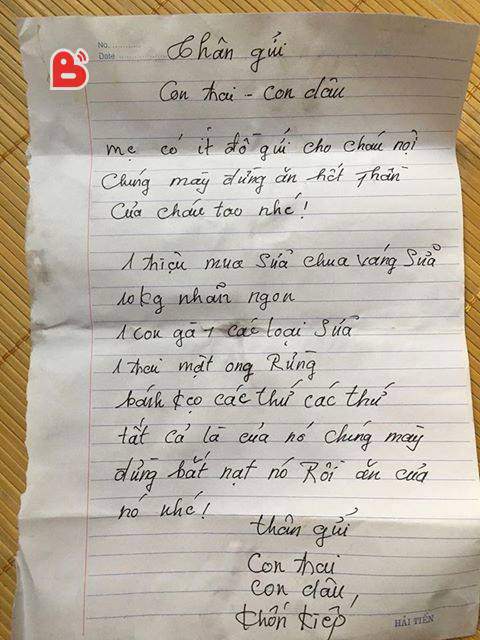 No. ..........
Date ..........
B
Thân gửi
Con trai - con dâu
mẹ có ít đồ gửi cho cháu nội
Chúng mày đừng ăn hết phần
Của cháu tao nhé!
1 triệu mua sữa chua váng sữa
10kg nhãn ngon
1 con gà + các loại sữa
1 chai mật ong Rừng
bánh kẹo các thứ các thứ
tất cả là của nó chúng mày
đừng bắt nạt nó Rồi ăn của
nó nhé!
thân gửi
Con trai
Con dâu,
khốn kiếp
HẢI TIẾN